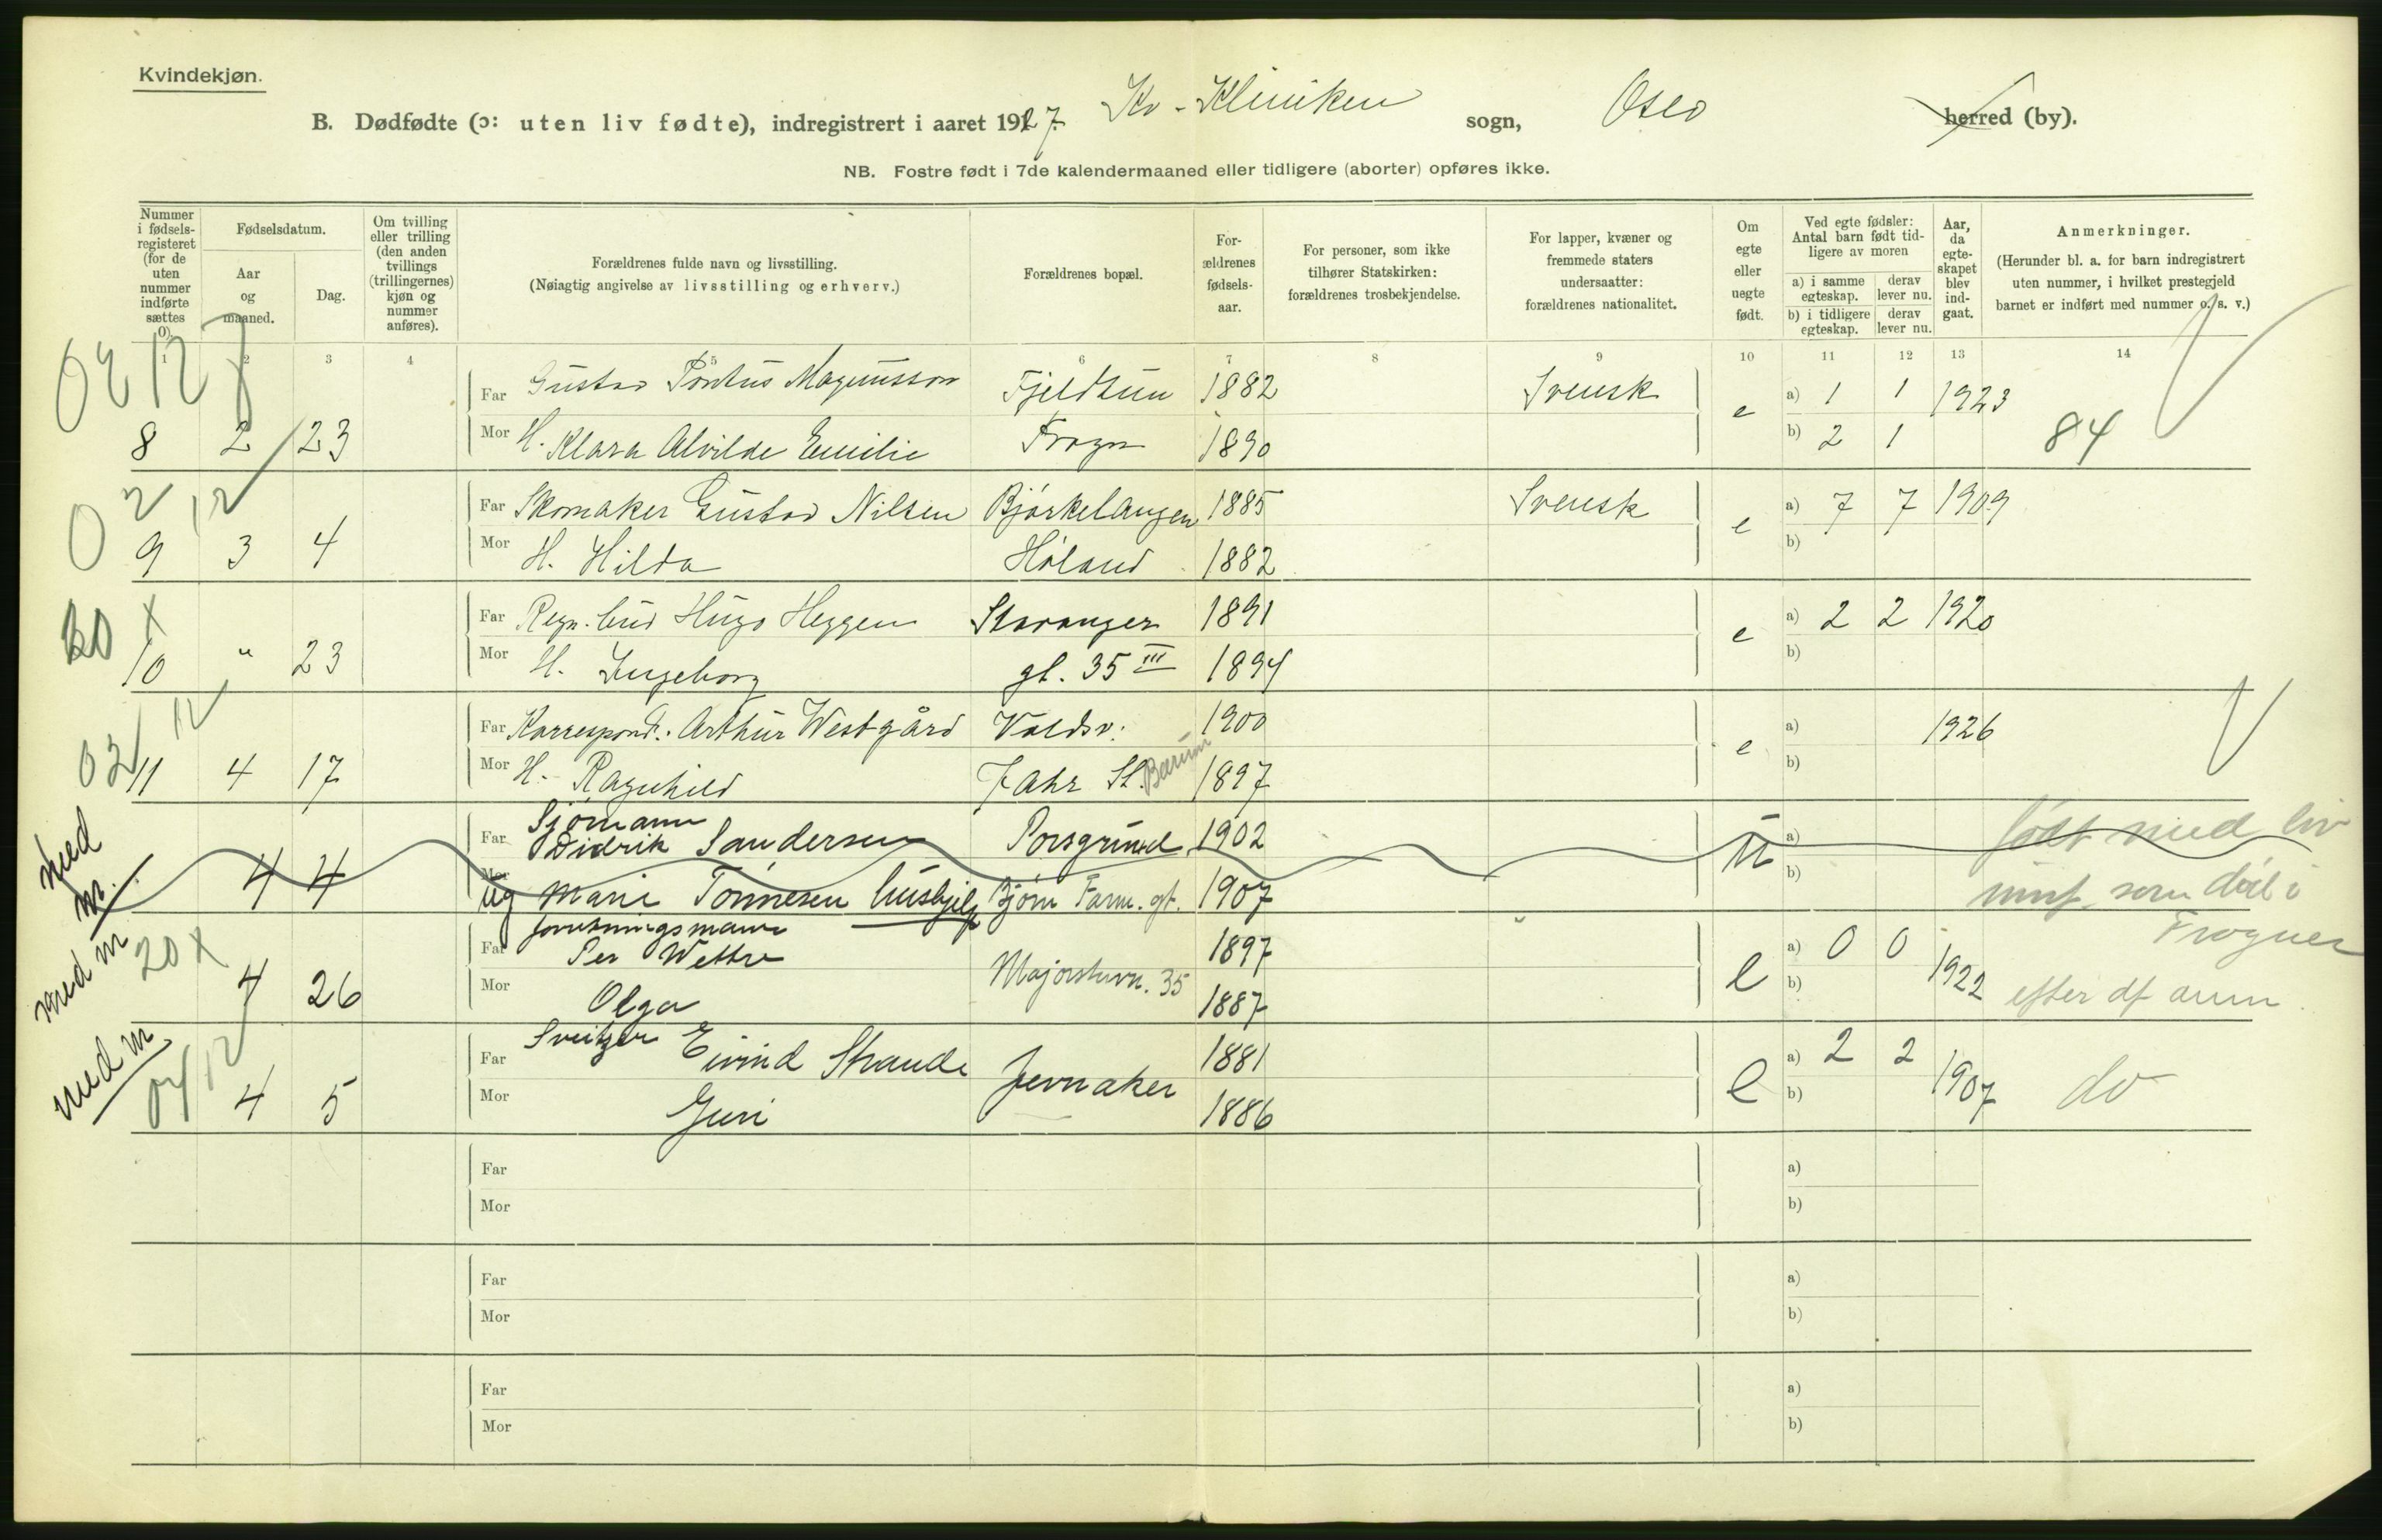 Kvindekjøn.
B. Dødfødte (ɔ: uten liv fødte), indregistrert i aaret 1927. Kv-Kliniken sogn, Oslo herred (by).
NB. Fostre født i 7de kalendermaaned eller tidligere (aborter) opføres ikke.
Nummer i fødselsregisteret (for de uten nummer indførte sættes 0).
Fødselsdatum.
Aar og maaned.
Dag.
Om tvilling eller trilling (den anden tvillings (trillingernes) kjøn og nummer anføres).
Forældrenes fulde navn og livsstilling.
(Nøiagtig angivelse av livsstilling og erhverv.)
Forældrenes bopæl.
Forældrenes fødselsaar.
For personer, som ikke tilhører Statskirken: forældrenes trosbekjendelse.
For lapper, kvæner og fremmede staters undersaatter: forældrenes nationalitet.
Om egte eller uegte født.
Ved egte fødsler: Antal barn født tidligere av moren
a) i samme egteskap.
derav lever nu.
b) i tidligere egteskap.
derav lever nu.
Aar, da egteskapet blev indgaat.
Anmerkninger.
(Herunder bl. a. for barn indregistrert uten nummer, i hvilket prestegjeld barnet er indført med nummer o. s. v.)
1 2 3 4 5 6 7 8 9 10 11 12 13 14
Far Gustav Pontus Magnusson Fjeldtun 1882 Svensk e a) 1 1 1923
8 2 23 Mor H. Klara Alvilde Emilie Frogn 1890 b) 2 1 84
Far Skomaker Gustav Nilsen Bjørkelangen 1885 Svensk e a) 7 7 1909
9 3 4 Mor H. Hilda Høland 1882 b)
20 x Far Regn. bud Hugo Heggen Stavanger 1891 e a) 2 2 1920
10 " 23 Mor H. Ingeborg gt. 35 III 1894 b)
Far Korrespond. Arthur Westgård Voldsv. 1900 e a) 1926
11 4 17 Mor H. Ragnhild Jahr St. Bærum 1897 b)
med m. Far Sjømann Didrik Sandersen Porsgrund 1902 u a) født med liv
4 4 Mor ug Marie Tønnesen hushjelp Bjørn Farm. gt. 1907 b) som død i Frogner
med m 20 x Far forretningsmann Per Wettre Majorstuvn. 35 1897 e a) 0 0 1922
4 26 Mor Olga 1887 b) efter df anm
med m Far Sveitser Eivind Strande Jevnaker 1881 e a) 2 2 1907 do
4 5 Mor Guri 1886 b)
Far a)
Mor b)
Far a)
Mor b)
Far a)
Mor b)